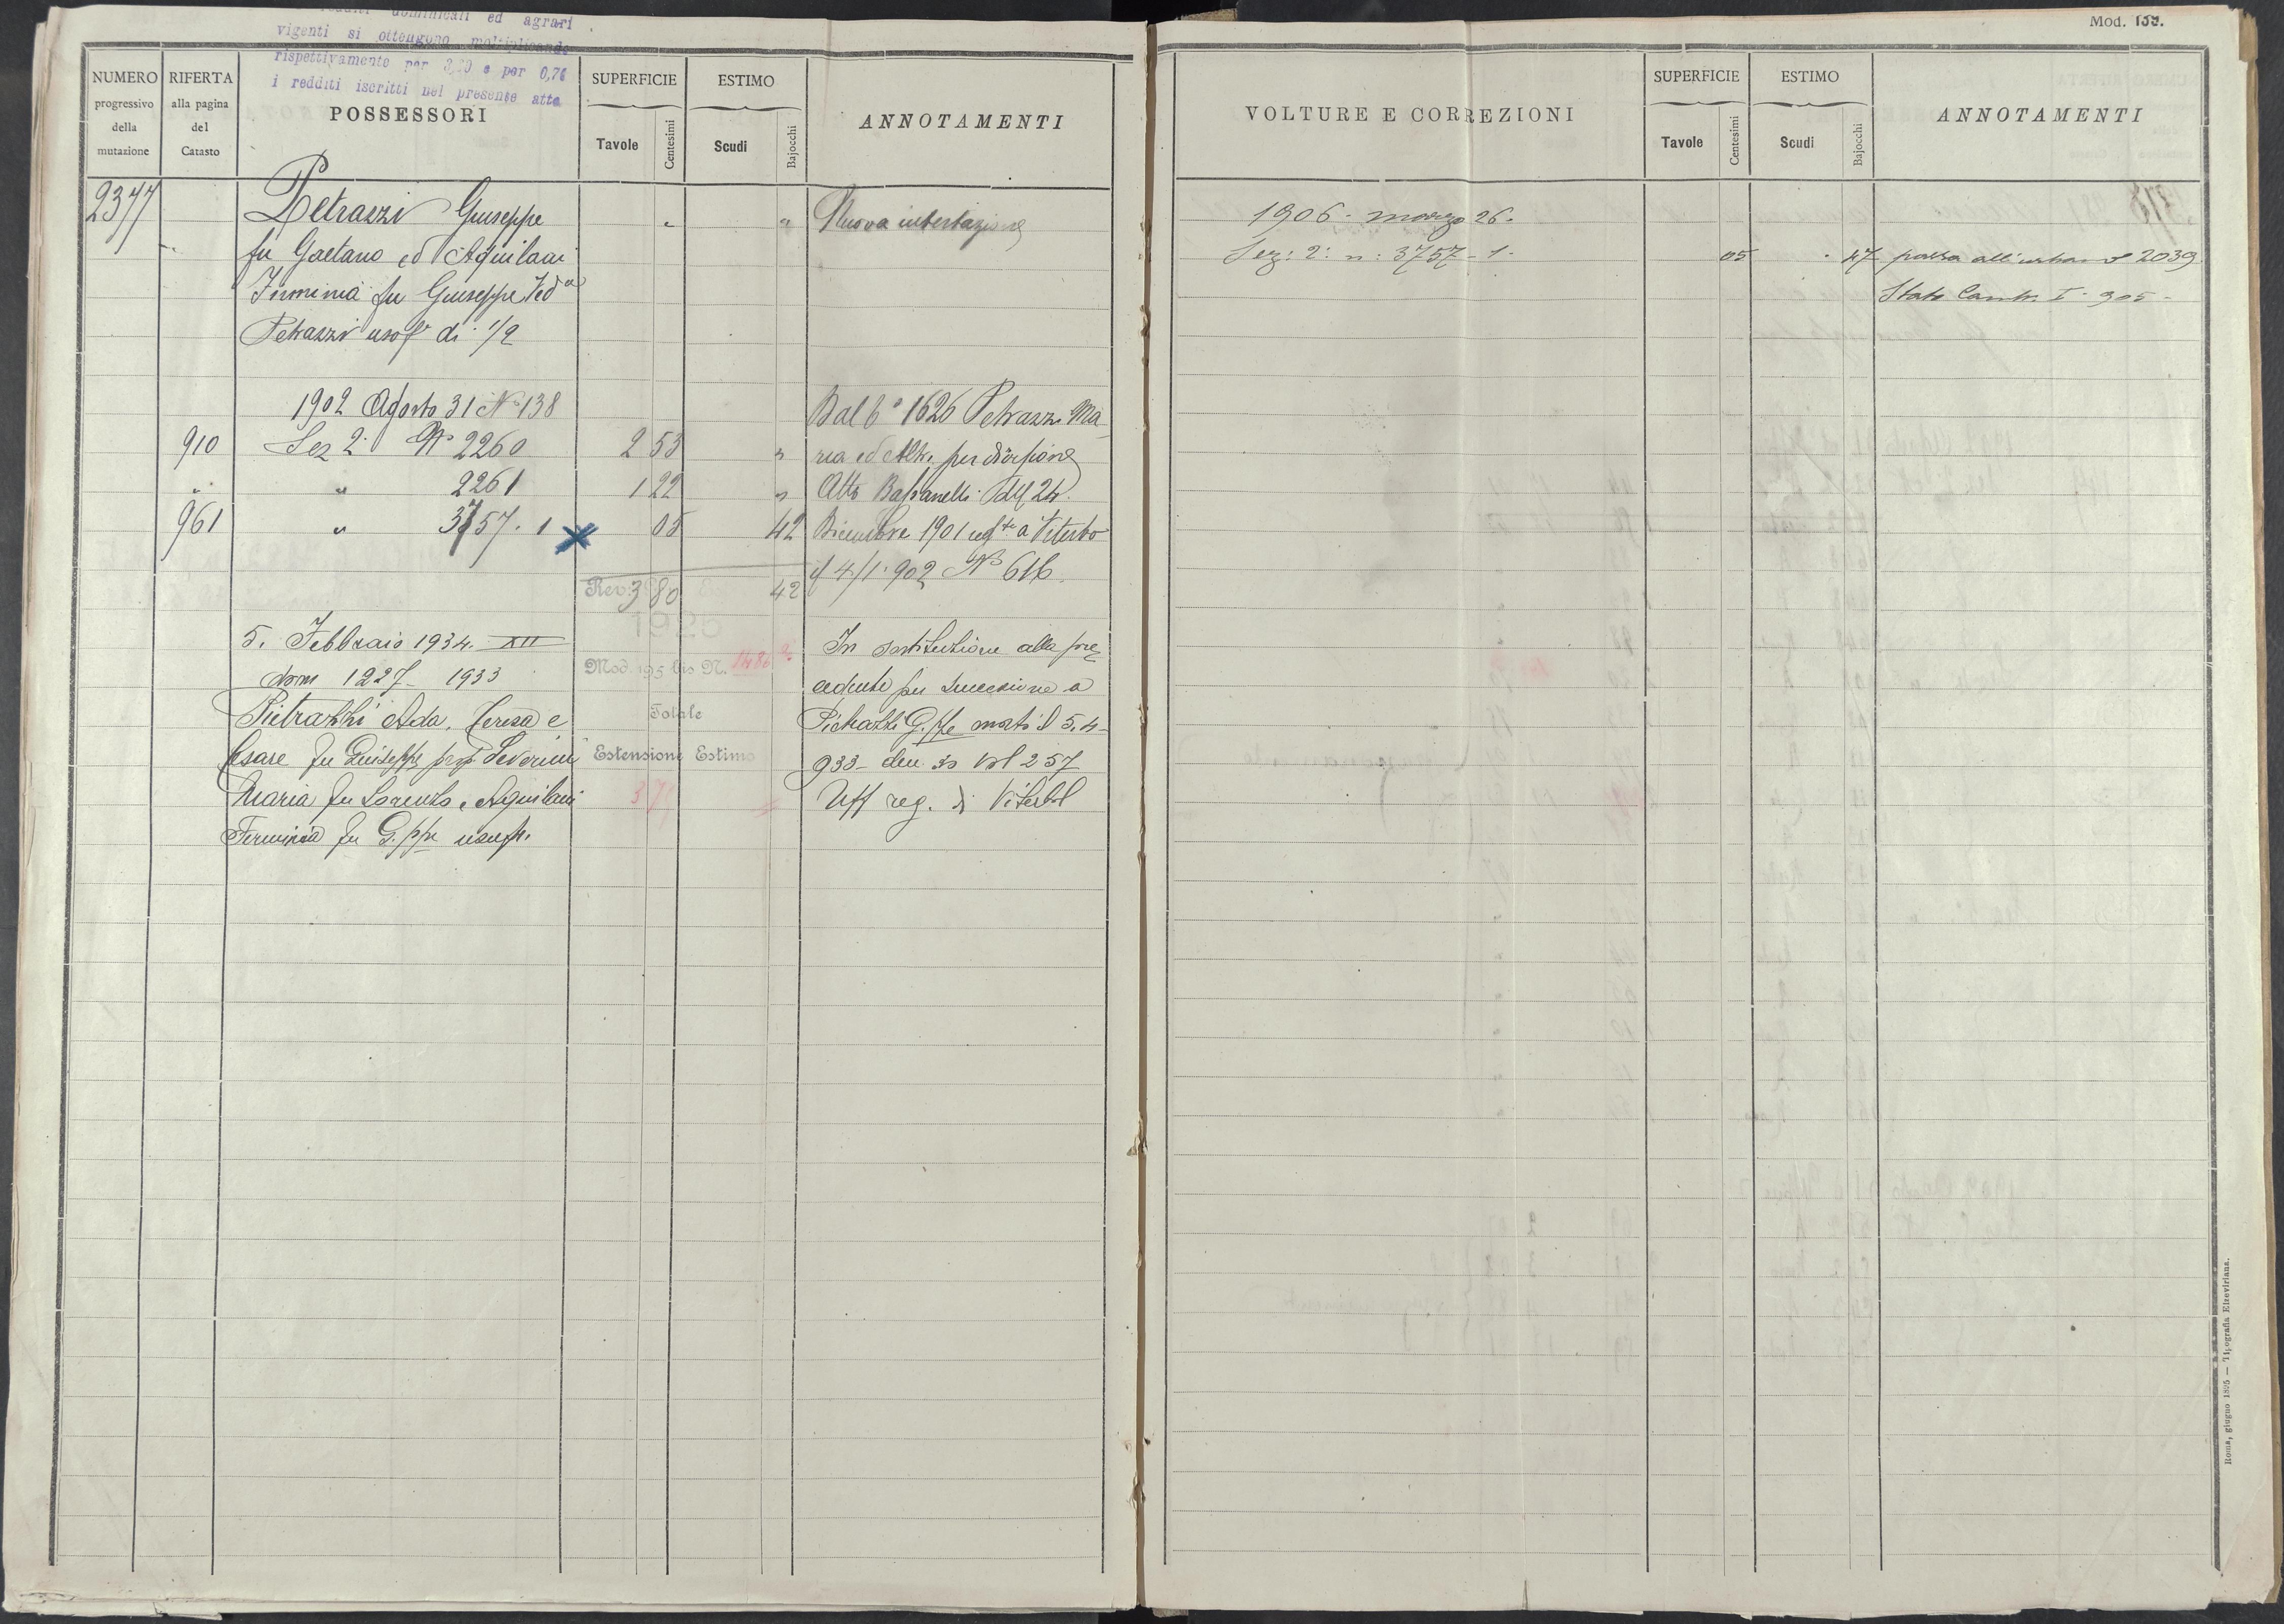 redditi dominicali ed agrari
vigenti si ottengono moltiplicando
rispettivamente per e per 0,76
i redditi iscritti nel presente atto
NUMERO
progressivo
della
mutazione
RIFERTA
alla pagina
del
Catasto
POSSESSORI
SUPERFICIE
Tavole
Centesimi
ESTIMO
Scudi
Bajocchi
ANNOTAMENTI
2377 Petrazzi Giuseppe " " Nuova intestazione
fu Gaetano ed Aquilani
Firminia fu Giuseppe Ved.a
Petrazzi usof. di 1/2
1902 Agosto 31 N° 138 Dal b° 1626 Petrazzi Ma
910 Sez 2. N° 2260 2 53 " ria ed Altri per divisione
" " 2261 1 22 " Atto Bassanelli del 24
961 " 3757. 1 05 42 Dicembre 1901 regto a Viterbo
Rev: 3 80 42 il 4/1. 902 N° 616
1920
5. Febbraio 1934. XII In sostituzione alla pre
Mod. 195 bis N. 1486
dom 1227 1933 cedente per successione a
Pietrazzi Ada, Teresa e Totale Pietrazzi G.ppe morto il 5.4-
Cesare fu Giuseppe prop Severini Estensione Estimo 933- den 30 Vol 257
Maria fu Lorenzo e Aquilani 3 7 Uff reg. di Viterbo
Firminia fu G.ppe usufr.
Mod. 139.
VOLTURE E CORREZIONI
SUPERFICIE
Tavole
Centesimi
ESTIMO
Scudi
Bajocchi
ANNOTAMENTI
1906 - marzo 26.
Sez: 2: n: 3757 - 1. 05 47 passa all'urbano 2039
Stato Camb. I. 905 -
Roma, giugno 1895 — Tipografia Elzeviriana.